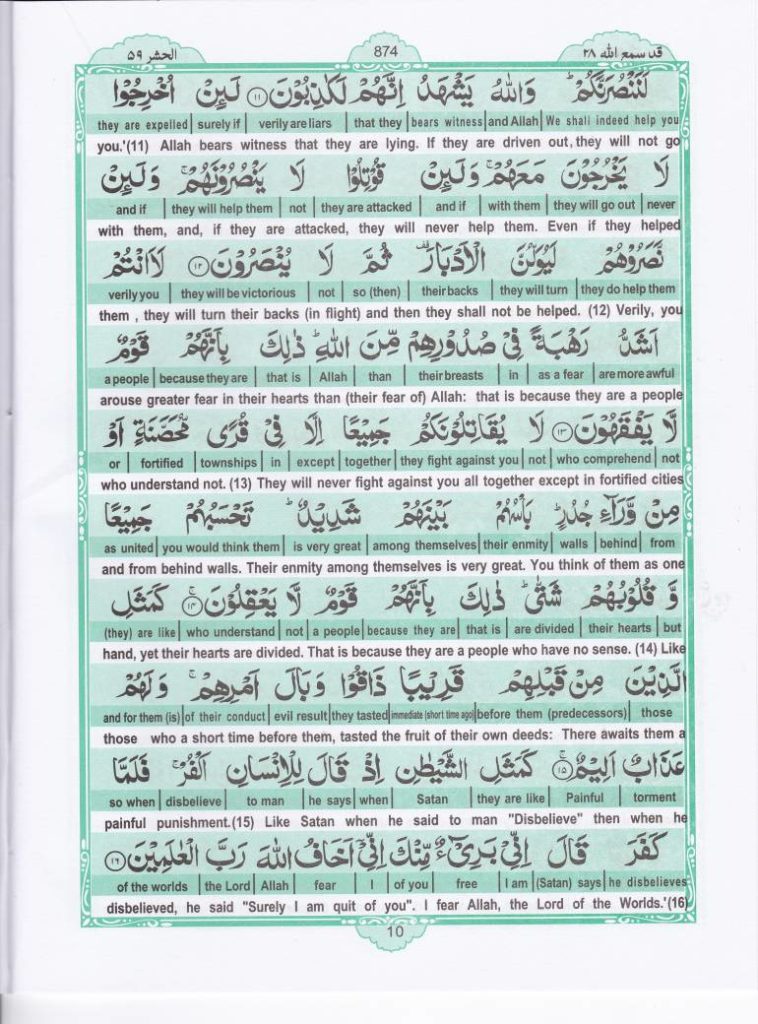 الحشر ٥٩
874
قد سمع الله ٢٨
لَنَنْصُرَنَّكُمْ ؕ وَاللّٰهُ يَشْهَدُ اِنَّهُمْ لَكٰذِبُوْنَ ﴿۱۱﴾ لَىِٕنْ اُخْرِجُوْا
they are expelled | surely if | verily are liars | that they | bears witness | and Allah | We shall indeed help you
you.'(11) Allah bears witness that they are lying. If they are driven out, they will not go
لَا يَخْرُجُوْنَ مَعَهُمْ ۚ وَلَىِٕنْ قُوْتِلُوْا لَا يَنْصُرُوْنَهُمْ ۚ وَلَىِٕنْ
and if | they will help them | not | they are attacked | and if | with them | they will go out | never
with them, and, if they are attacked, they will never help them. Even if they helped
نَّصَرُوْهُمْ لَيُوَلُّنَّ الْاَدْبَارَ ۫ ثُمَّ لَا يُنْصَرُوْنَ ﴿۱۲﴾ لَاَانْتُمْ
verily you | they will be victorious | not | so (then) | their backs | they will turn | they do help them
them , they will turn their backs (in flight) and then they shall not be helped. (12) Verily, you
اَشَدُّ رَهْبَةً فِيْ صُدُوْرِهِمْ مِّنَ اللّٰهِ ؕ ذٰلِكَ بِاَنَّهُمْ قَوْمٌ
a people | because they are | that is | Allah | than | their breasts | in | as a fear | are more awful
arouse greater fear in their hearts than (their fear of) Allah: that is because they are a people
لَّا يَفْقَهُوْنَ ﴿۱۳﴾ لَا يُقَاتِلُوْنَكُمْ جَمِيْعًا اِلَّا فِيْ قُرًى مُّحَصَّنَةٍ اَوْ
or | fortified | townships | in | except | together | they fight against you | not | who comprehend | not
who understand not. (13) They will never fight against you all together except in fortified cities
مِنْ وَّرَآءِ جُدُرٍ ؕ بَاْسُهُمْ بَيْنَهُمْ شَدِيْدٌ ؕ تَحْسَبُهُمْ جَمِيْعًا
as united | you would think them | is very great | among themselves | their enmity | walls | behind | from
and from behind walls. Their enmity among themselves is very great. You think of them as one
وَّ قُلُوْبُهُمْ شَتّٰى ؕ ذٰلِكَ بِاَنَّهُمْ قَوْمٌ لَّا يَعْقِلُوْنَ ۚ﴿۱۴﴾ كَمَثَلِ
(they) are like | who understand | not | a people | because they are | that is | are divided | their hearts | but
hand, yet their hearts are divided. That is because they are a people who have no sense. (14) Like
الَّذِيْنَ مِنْ قَبْلِهِمْ قَرِيْبًا ذَاقُوْا وَبَالَ اَمْرِهِمْ ۚ وَلَهُمْ
and for them (is) | of their conduct | evil result | they tasted | immediate (short time ago) | before them (predecessors) | those
those who a short time before them, tasted the fruit of their own deeds: There awaits them a
عَذَابٌ اَلِيْمٌ ۚ﴿۱۵﴾ كَمَثَلِ الشَّيْطٰنِ اِذْ قَالَ لِلْاِنْسَانِ اكْفُرْ ۚ فَلَمَّا
so when | disbelieve | to man | he says | when | Satan | they are like | Painful | torment
painful punishment.(15) Like Satan when he said to man "Disbelieve" then when he
كَفَرَ قَالَ اِنِّيْ بَرِيْٓءٌ مِّنْكَ اِنِّيْٓ اَخَافُ اللّٰهَ رَبَّ الْعٰلَمِيْنَ ﴿۱۶﴾
of the worlds | the Lord | Allah | fear | I | of you | free | I am | (Satan) says | he disbelieves
disbelieved, he said "Surely I am quit of you". I fear Allah, the Lord of the Worlds.'(16)
10